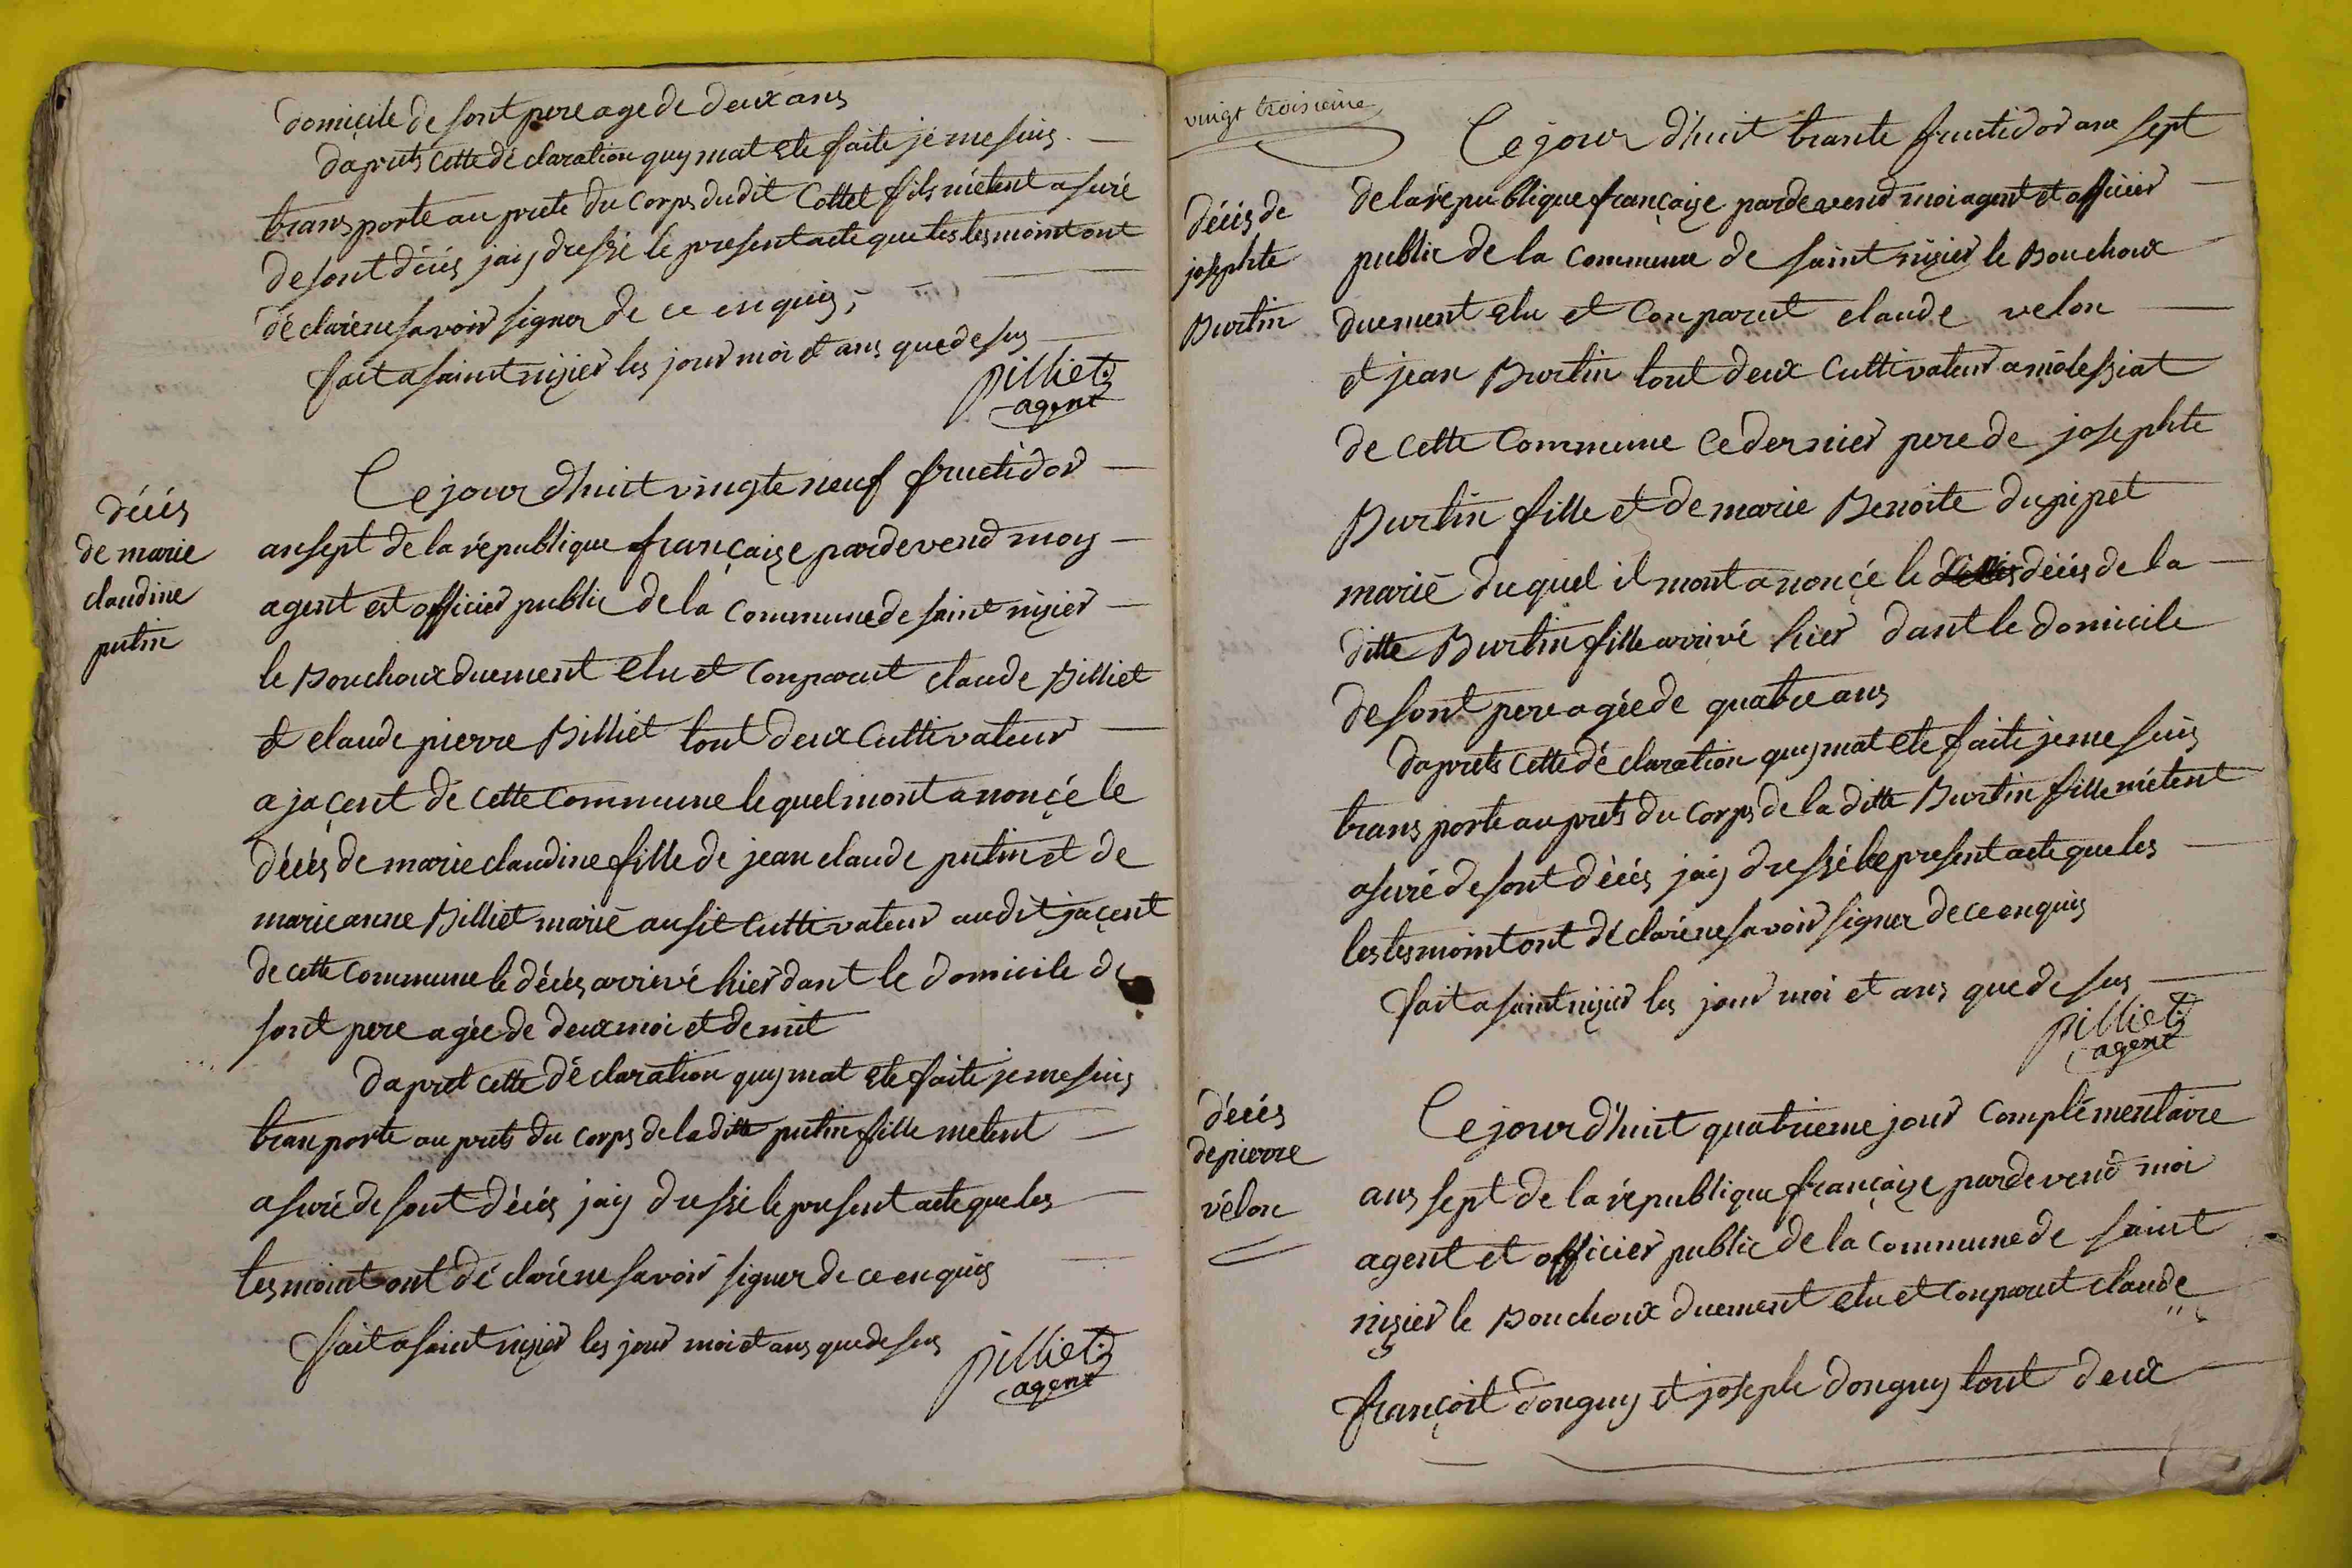 domicile de sont pere age de deux ans
daprets cette déclaration quy mat ete faite je me suis
transporte au prets du corps dudit Cottet fils métent asuré
de sont décés jaiy dressé le present acte que les tesmoint ont
déclaré ne savoir signer de ce enquis
fait a saint nizier les jour moi et ans que desus
pilliet
agent
décés
de marie
claudine
putin
Ce jour dhuit vingte neuf fructidor
an sept de la république française pardevend moy
agent est officier public de la commune de saint nizier
le Bouchoux duement elu et Conparut claude Billiet
et claude pierre Billiet tout deux Cultivateur
a jaçent de cette commune lequel mont anonçé le
décés de marie claudine fille de jean claude putin et de
marieanne Billiet marié ausit Cultivateur audit jaçent
de cette commune le décés arrivé hier dant le domicile de
sont pere agée de deux moi et demit
dapret cette déclaration quy mat ete faite je me suis
tranporte au prets du corps de la ditte putin fille metent
asuré de sont décés jaiy dressé le present acte que les
tesmoint ont déclaré ne savoir signer de ce enquis
fait a saint nizier les jour moi et ans que desus
pilliet
agent
vingt troisieme
décés de
josephte
Burtin
Ce jour dhuit trante fructidor ans sept
de la république française pardevend moi agent et officier
public de la commune de saint nizier le Bouchoux
duement elu et Conparut claude velon
et jean Burtin tout deux Cultivateur a molessiat
de cette Commune ce dernier pere de josephte
Burtin fille et de marie Benoite dupipet
marié duquel il mont anonçé le décés de la
ditte Burtin fille arrivé hier dant le domicile
de sont pere agée de quatre ans
daprets cette déclaration quy mat ete faite je me suis
transporte au prets du corps de la ditte Burtin fille métent
asuré de sont décés jaiy dressé le present acte que les
les tesmoint ont déclaré ne savoir signer de ce enquis
fait a saint nizier les jour moi et ans que desus
pilliet
agent
décés
de pierre
vélon
Ce jour d'huit quatrieme jour complémentaire
ans sept de la république française pardevend moi
agent et officier public de la commune de saint
nizier le Bouchoux duement elu et Conparut claude
françoit donguy et joseph donguy tout deux